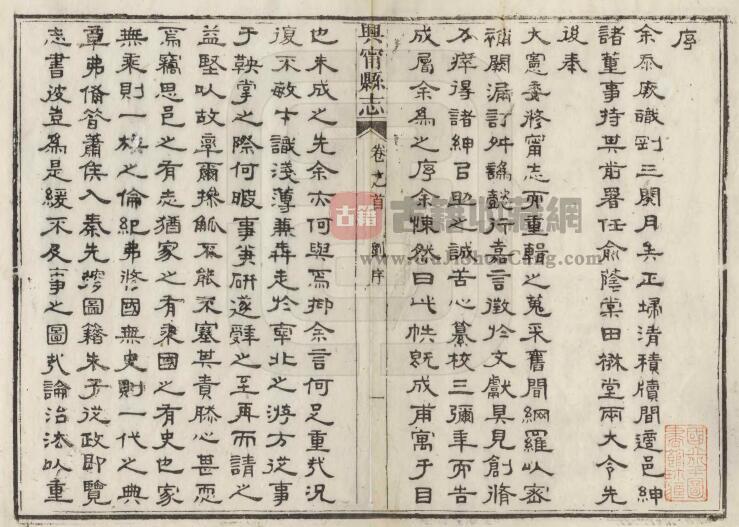 序
余忝廁職到三閱月矣正埽清積牘間適邑紳
諸董事持其前署任俞蔭棠田楙堂兩大令先
後奉
大憲委修甯志而重輯之蒐采舊聞網羅以密
補闕漏訂舛譌懿行嘉言徵於文獻具見創脩
不痒得諸紳召助之誠苦心纂校三彌年而告
成屬余為之序余悚然曰此帙旣成甫寓于目
興甯縣志
卷之首
劉序
一
也未成之先余亦何與焉抑余言何足重哉況
復不敏才識淺薄兼犇走於寧北之游方從事
于鞅掌之際何暇事筆研遂辭之至再而請之
益堅以故率爾操觚不能不塞其責勝心甚恧
焉竊思邑之有志猶家之有乘國之有史也家
無乘則一族之倫紀弗修國無史則一代之典
章弗備昔蕭侯入秦先收圖籍朱子從政即覽
志書彼豈為是緩不及事之圖哉論治法以重
古籍
古籍收藏網
www.GuJiShouCang.com